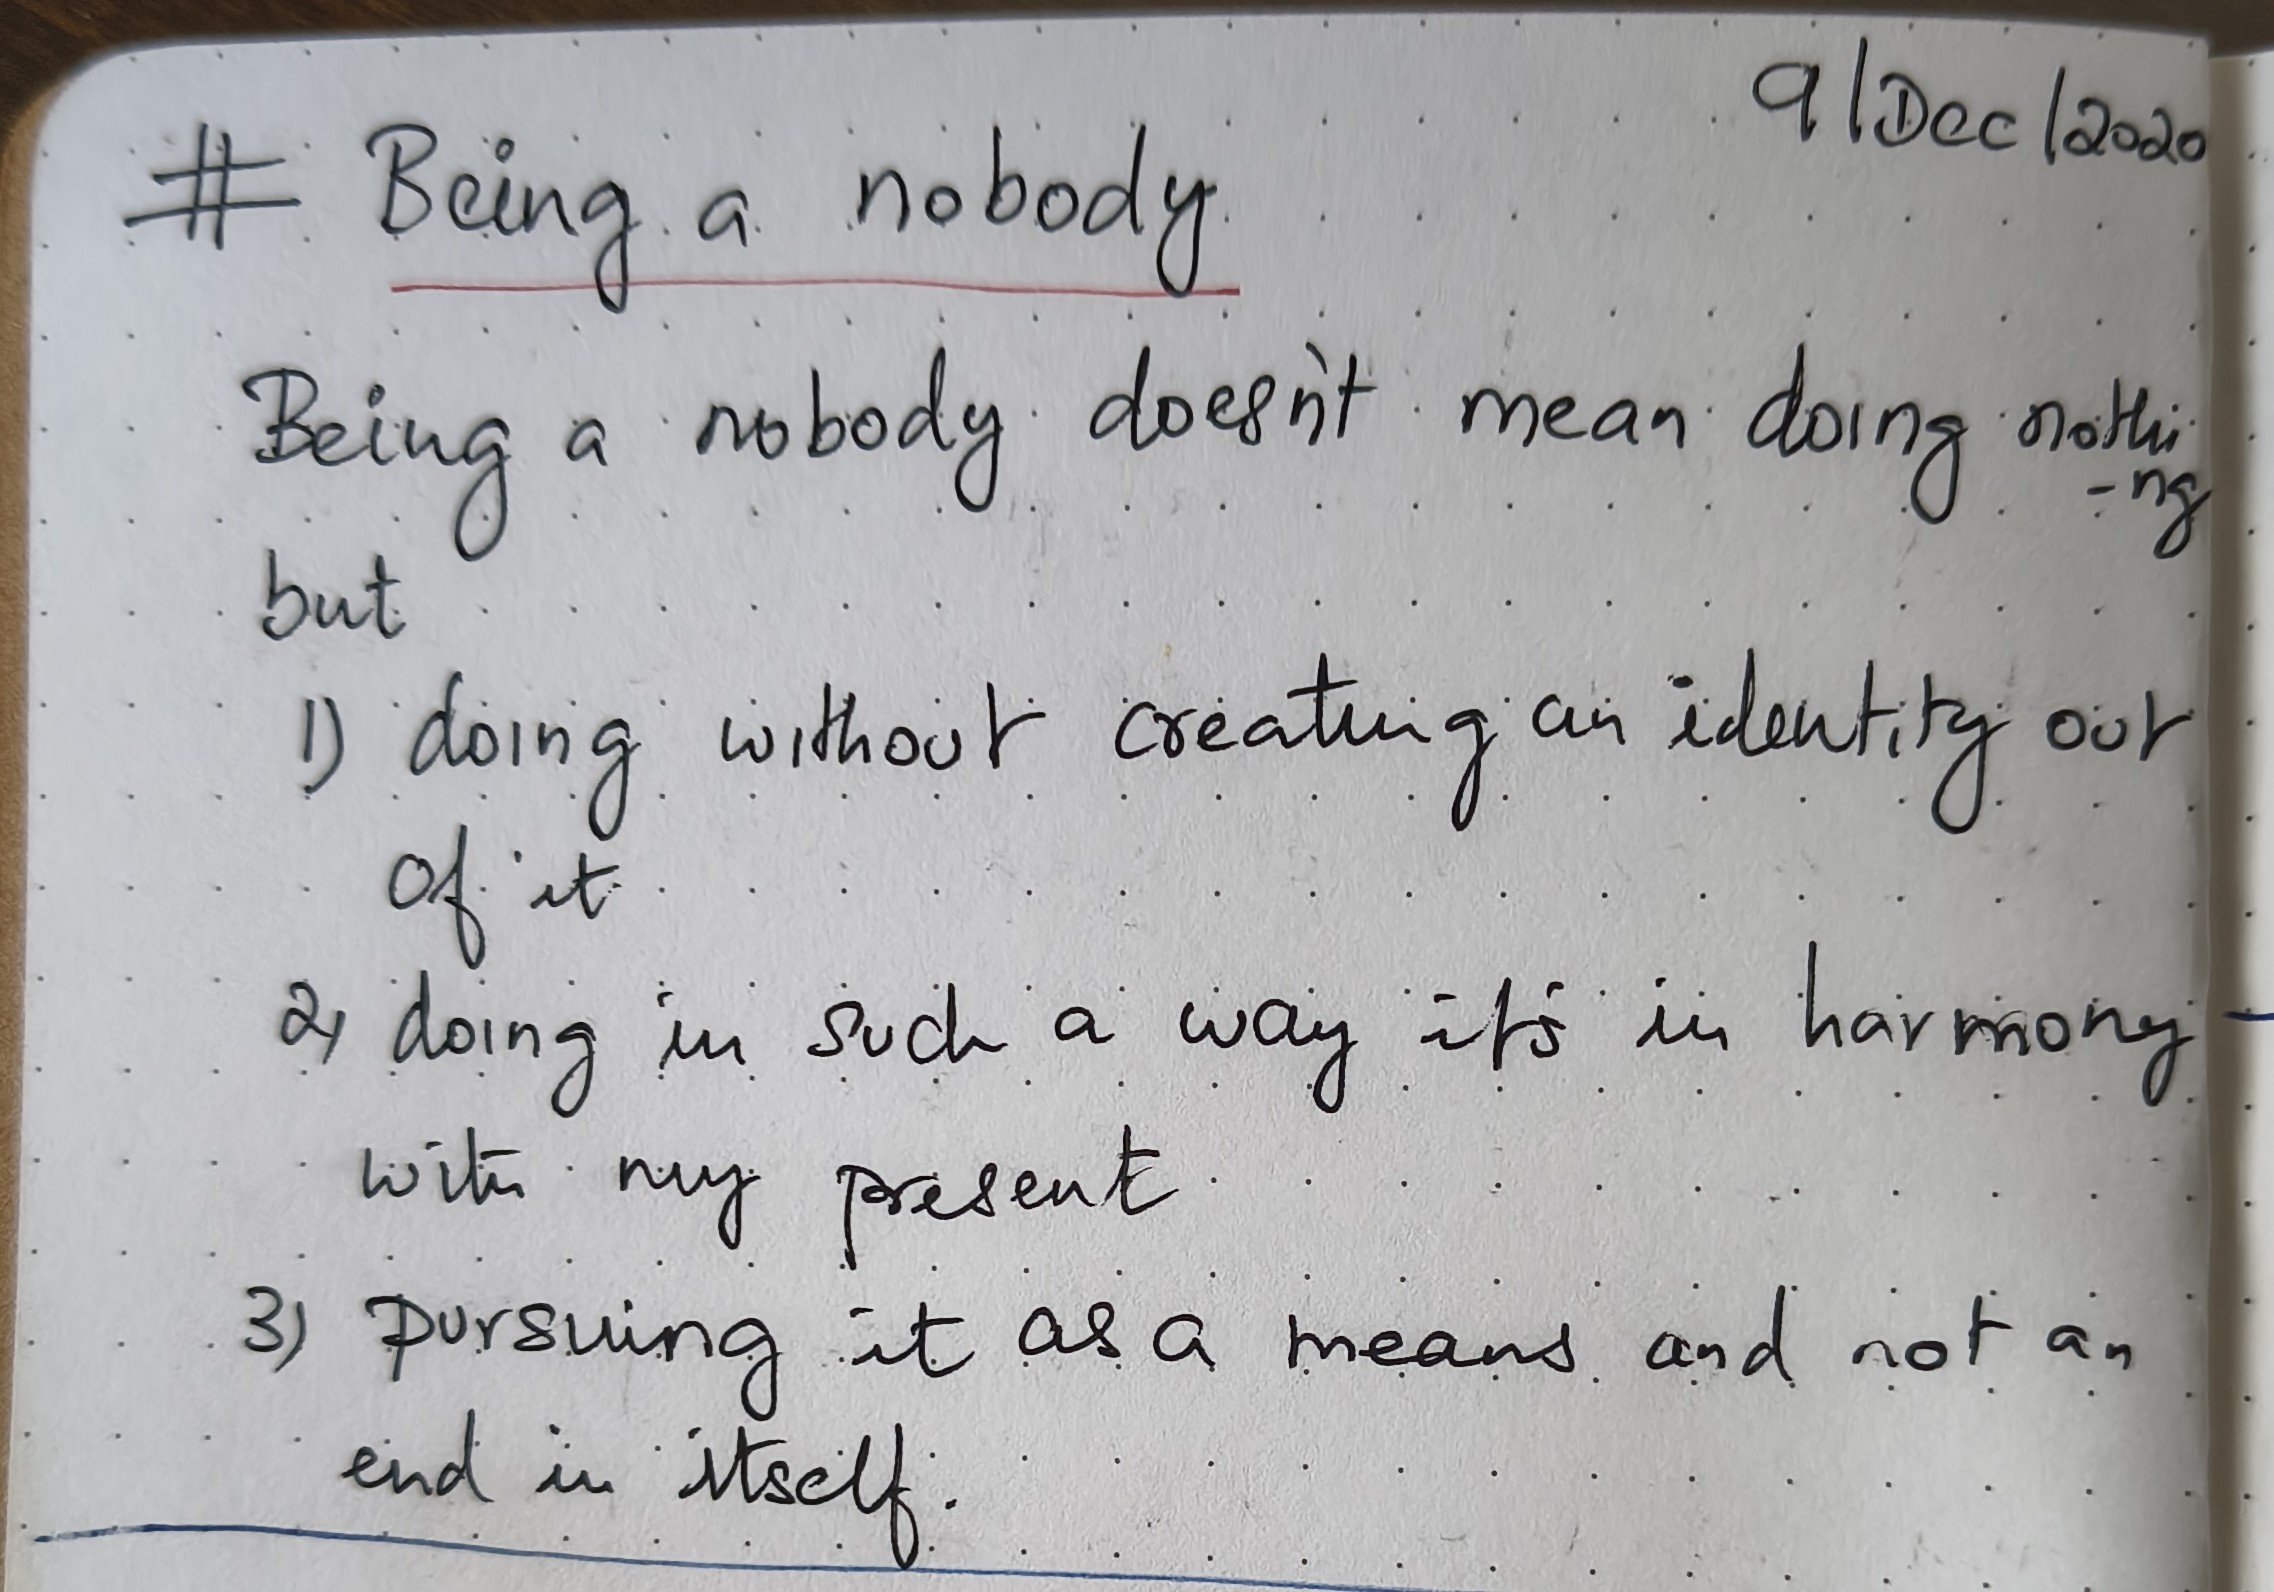 9/Dec/2020
# Being a nobody
Being a nobody doesn't mean doing nothi
-ng
but
1) doing without creating an identity out
of it
2) doing in such a way it's in harmony
with my present
3) pursuing it as a means and not an
end in itself.